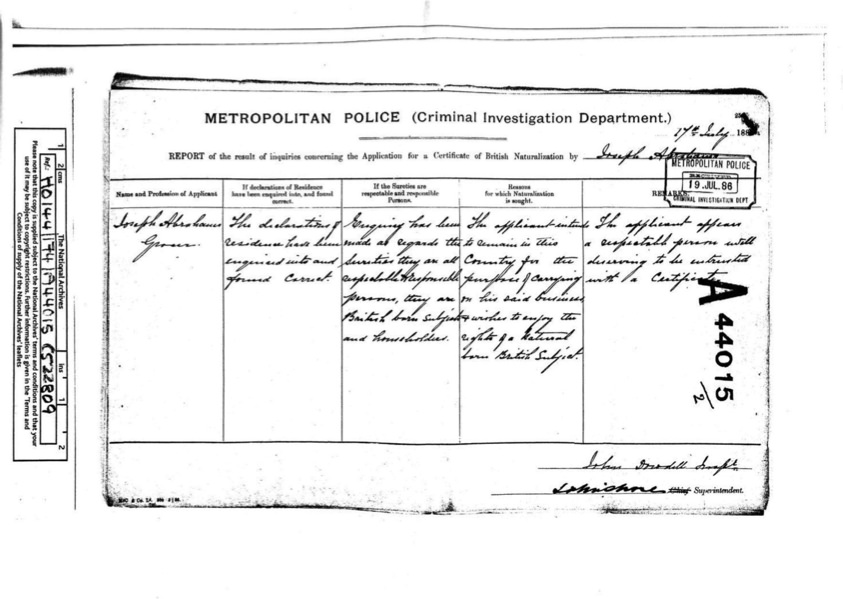 METROPOLITAN POLICE (Criminal Investigation Department.)
17th July 188
REPORT of the result of inquiries concerning the Application for a Certificate of British Naturalization by Joseph Abrahams
METROPOLITAN POLICE
19 JUL. 86
CRIMINAL INVESTIGATION DEPT
Name and Profession of Applicant
If declarations of Residence
have been enquired into, and found
correct.
If the Sureties are
respectable and responsible
Persons.
Reasons
for which Naturalization
is sought.
REMARKS
Joseph Abrahams
Grocer.
The declarations of
residence have been
enquired into and
found correct.
Enquiry has been
made as regards the
sureties they are all
respectable & responsible
persons, they are
British born subjects
and householders.
The applicant intends
to remain in this
Country for the
purpose of carrying
on his said business
& wishes to enjoy the
rights of a Natural
born British Subject.
The applicant appears
a respectable person well
deserving to be intrusted
with a Certificate.
A 44015
/2
John Dowdell Inspr.
John Shore Chief Superintendent.
1 2 cms
The National Archives
ins 1 2
ref.: HO 144/174/A44015 C522809
Please note that this copy is supplied subject to the National Archives' terms and conditions and that your
use of it may be subject to copyright restrictions. Further information is given in the 'Terms and
Conditions of supply of the National Archives' leaflets